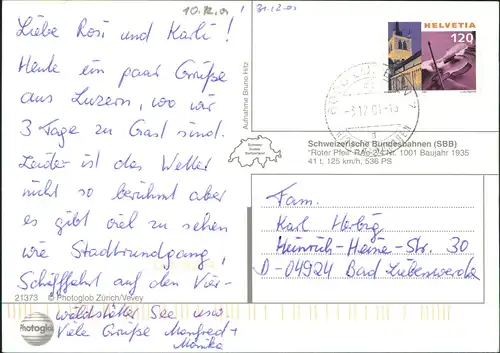 10.12.01
31.12.01
Liebe Rosi und Karli!
Heute ein paar Grüße
aus Luzern, wo wir
3 Tage zu Gast sind.
Leider ist das Wetter
nicht so berühmt aber
es gibt viel zu sehen
wie Stadtrundgang,
Schiffahrt auf den Vier-
waldstätter See usw.
Viele Grüße Manfred +
Monika
21373 © Photoglob Zürich/Vevey
Photoglob
Aufnahme Bruno Hitz
HELVETIA
120
Schweizerische Bundesbahnen (SBB)
"Roter Pfeil" RAe 2/4 Nr. 1001 Baujahr 1935
41 t, 125 km/h, 536 PS
Fam.
Karl Herbig
Heinrich-Heine-Str. 30
D-04924 Bad Liebenwerda